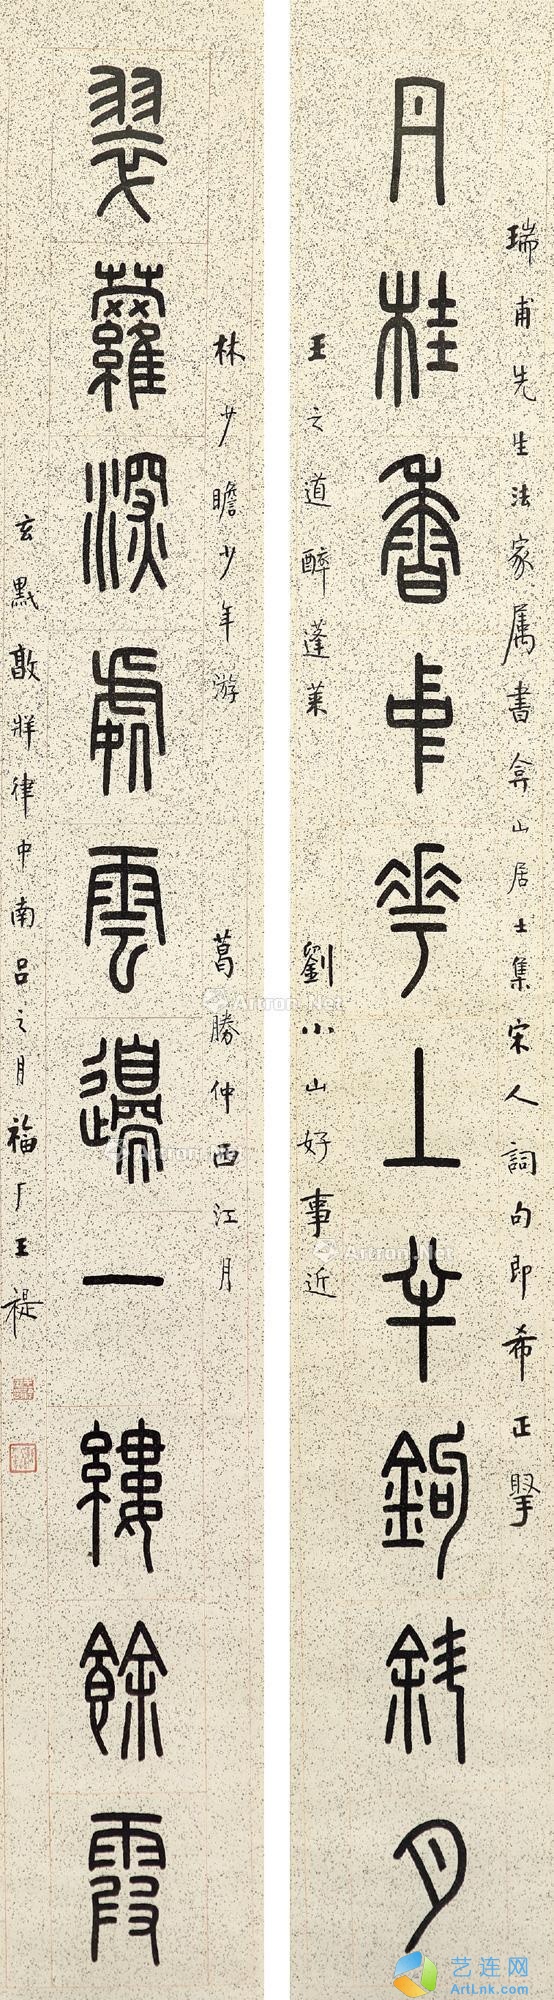 瑞甫先生法家属書弇山居士集宋人詞句即希正掔
丹桂香中華上半鉤斜月
王之道醉蓬萊 劉小山好事近
林少瞻少年游 葛勝仲西江月
翠蘿深處雲邊一縷餘霞
玄黓敦牂律中南吕之月福厂王禔
Artron.Net
艺连网
ArtLnk.com